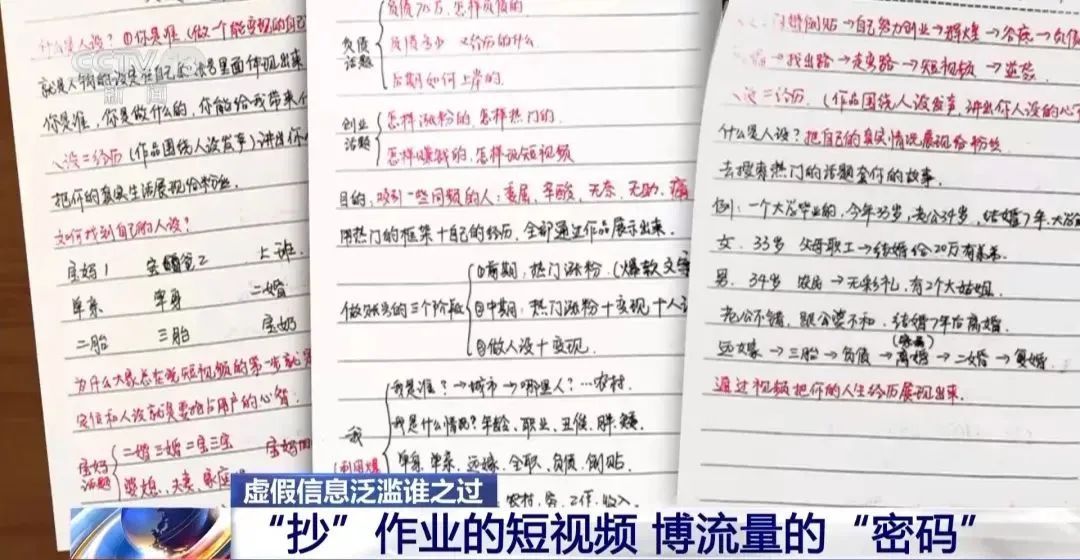 CCTV 13
新闻
什么是人设？①你是谁（做一个能变现的自己
你是谁，你是做什么的，你能给我带来
人设=经历（作品围绕人设发声）讲出你
把你的真实生活展现给粉丝。
如何找到自己的人设？
宝妈1
上班
单亲
单身
二婚
二胎
三胎
宝奶
为什么大家总在说短视频的第一步就
定位和人设就是要抢占用户的心智：
宝妈
话题
二婚三婚二宝三宝
婆媳、夫妻、家庭
负债
话题
负债70万，怎样负债的
负债多少 又经历的什么
后期如何上岸的
创业
话题
怎样涨粉的，怎样热门的
怎样赚钱的，怎样说短视频
目的：吸引一些同频的人：委屈、辛酸、无奈、无助、痛
用热门的框架+自己的经历，全部通过作品展示出来。
做账号的三个阶段
①前期：热门涨粉（爆款文字
②中期：热门涨粉+变现+人设
③做人设+变现
我
我是谁？→城市→哪里人？…农村
我是什么情况？年龄、职业、丑、胖、矮
单身、单亲、远嫁、全职、负债、倒贴
农村、穷、工作、收入
→自己努力创业→辉煌→谷底→负债
→找出路→走弯路→短视频→逆袭
人设=经历（作品围绕人设发声，讲出你人设的心
什么是人设？把自己的真实情况展现给粉丝
去搜索热门的话题套你的故事。
例：一个大专毕业的，今年33岁，老公34岁，结婚7年，大
女，33岁 父母职工→结婚给20万
男，34岁 农民→无彩礼，有2个大姑姐
老公不错，跟公婆不和，结婚7年后离婚
远嫁→三胎→负债→离婚→二婚→复婚
通过视频把你的人生经历展现出来
虚假信息泛滥谁之过
“抄”作业的短视频 博流量的“密码”